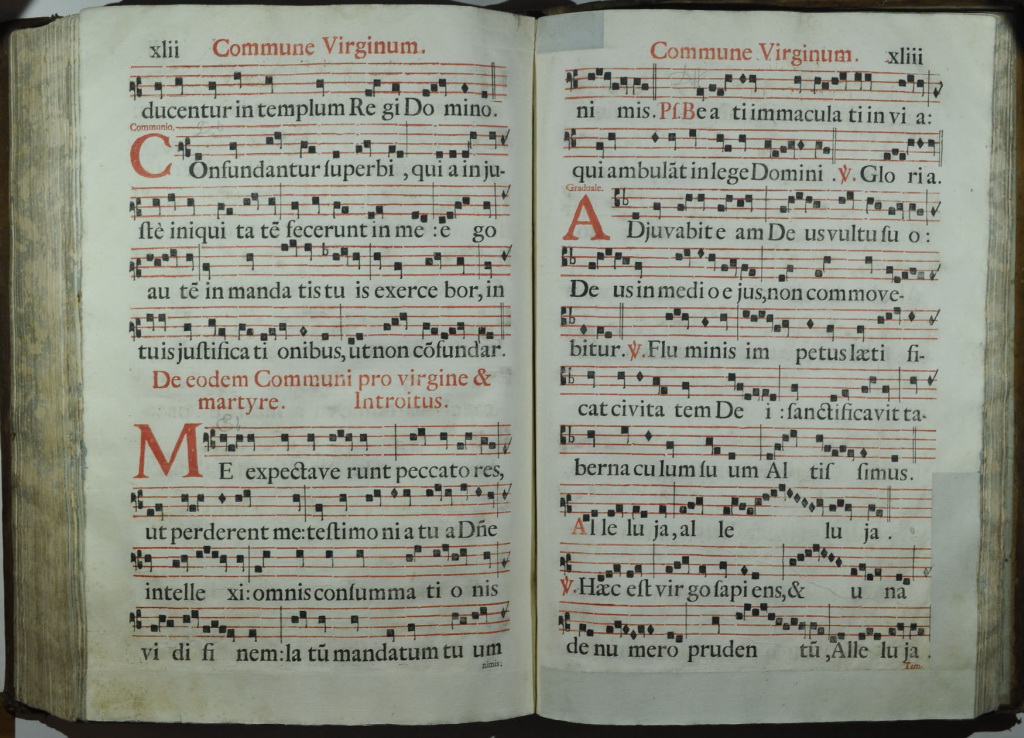 xlii Commune Virginum.
ducentur in templum Re gi Do mino.
Communio.
COnfundantur superbi , qui a in ju-
stè iniqui ta tẽ fecerunt in me : e go
au tẽ in manda tis tu is exerce bor, in
tuis justifica ti onibus, ut non cõfundar.
De eodem Communi pro virgine &
martyre. Introitus.
ME expectave runt peccato res,
ut perderent me: testimo ni a tu a Dñe
intelle xi: omnis consumma ti o nis
vi di fi nem: la tũ mandatum tu um
nimis:
Commune Virginum. xliii
ni mis. Ps. Be a ti immacula ti in vi a:
qui ambulãt in lege Domini . ℣. Glo ri a.
Graduale.
ADjuvabit e am De us vultu su o :
De us in medi o e jus, non commove-
bitur. ℣. Flu minis im petus læti fi-
cat civita tem De i : sanctificavit ta-
berna cu lum su um Al tis simus.
Al le lu ja, al le lu ja .
℣. Hæc est vir go sapi ens, & u na
de nu mero pruden tũ , Alle lu ja .
Tem.